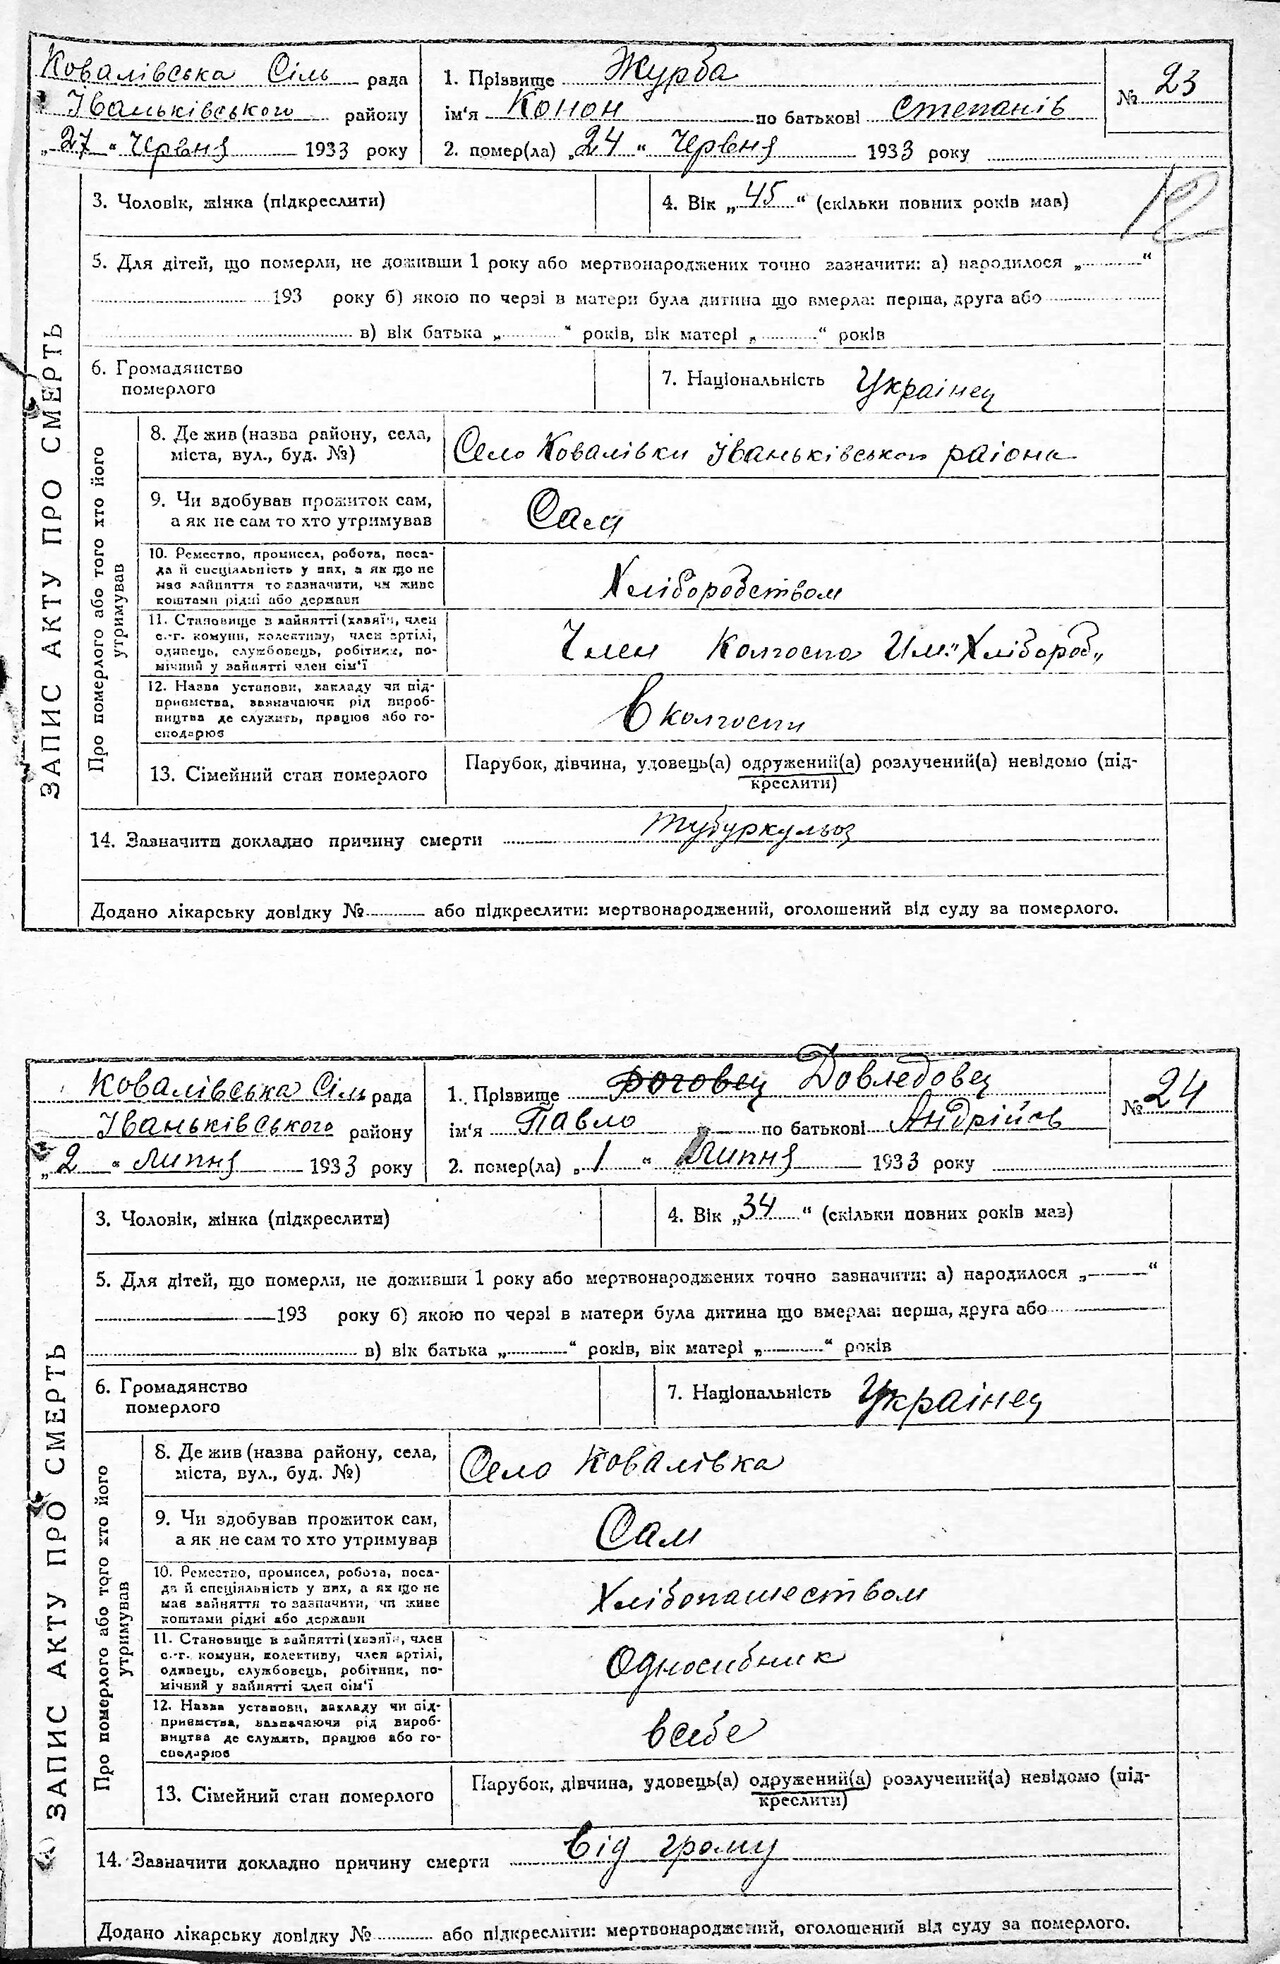 Ковалівська Сіль рада
Іваньківського району
„27" Червня 1933 року
1. Прізвище Журба
ім'я Конон по батькові Степанів
2. помер(ла) „24" Червня 1933 року
№ 23
3. Чоловік, жінка (підкреслити)
4. Вік „45" (скільки повних років мав)
5. Для дітей, що померли, не доживши 1 року або мертвонароджених точно зазначити: а) народилося „ "
193 року б) якою по черзі в матери була дитина що вмерла: перша, друга або
в) вік батька „ " років, вік матері „ " років
6. Громадянство
померлого
7. Національність Украінец
ЗАПИС АКТУ ПРО СМЕРТЬ
Про померлого або того хто його
утримував
8. Де жив (назва району, села,
міста, вул., буд. №)
Село Ковалівки Іваньківського раіона
9. Чи вдобував прожиток сам,
а як не сам то хто утримував
Сам
10. Ремество, промисел, робота, поса-
да й спеціяльність у них, а як що не
мав зайняття то зазначити, чи живе
коштами рідні або держави
Хліборобством
11. Становище в зайнятті (хазяїн, член
с.-г. комуни, колективу, член артілі,
одинець, службовець, робітник, по-
мічний у зайнятті член сім'ї
Член Колгоспа Им. „Хлібороб„
12. Назва установи, закладу чи під-
приємства, зазначаючи рід вироб-
ництва де служить, працює або го-
сподарює
В колгоспи
13. Сімейний стан померлого
Парубок, дівчина, удовець(а) одружений(а) розлучений(а) невідомо (під-
креслити)
14. Зазначити докладно причину смерти тубуркульоз
Додано лікарську довідку № або підкреслити: мертвонароджений, оголошений від суду за померлого.
Ковалівська Сіль рада
Іваньківського району
„2" липня 1933 року
1. Прізвище Роговец Довледовец
ім'я Павло по батькові Андрійов
2. помер(ла) „1" Липня 1933 року
№ 24
3. Чоловік, жінка (підкреслити)
4. Вік „34" (скільки повних років мав)
5. Для дітей, що померли, не доживши 1 року або мертвонароджених точно зазначити: а) народилося „ "
193 року б) якою по черзі в матери була дитина що вмерла: перша, друга або
в) вік батька „ " років, вік матері „ " років
6. Громадянство
померлого
7. Національність Украінец
ЗАПИС АКТУ ПРО СМЕРТЬ
Про померлого або того хто його
утримував
8. Де жив (назва району, села,
міста, вул., буд. №)
Село Ковалівка
9. Чи здобував прожиток сам,
а як не сам то хто утримував
Сам
10. Ремество, промисел, робота, поса-
да й спеціяльність у них, а як що не
мав зайняття то зазначити, чи живе
коштами рідні або держави
Хлібопашеством
11. Становище в зайнятті (хазяїн, член
с.-г. комуни, колективу, член артілі,
одинець, службовець, робітник, по-
мічний у зайнятті член сім'ї
Односибник
12. Назва установи, закладу чи під-
приємства, зазначаючи рід вироб-
ництва де служить, працює або го-
сподарює
в себе
13. Сімейний стан померлого
Парубок, дівчина, удовець(а) одружений(а) розлучений(а) невідомо (під-
креслити)
14. Зазначити докладно причину смерти від грому
Додано лікарську довідку № або підкреслити: мертвонароджений, оголошений від суду за померлого.